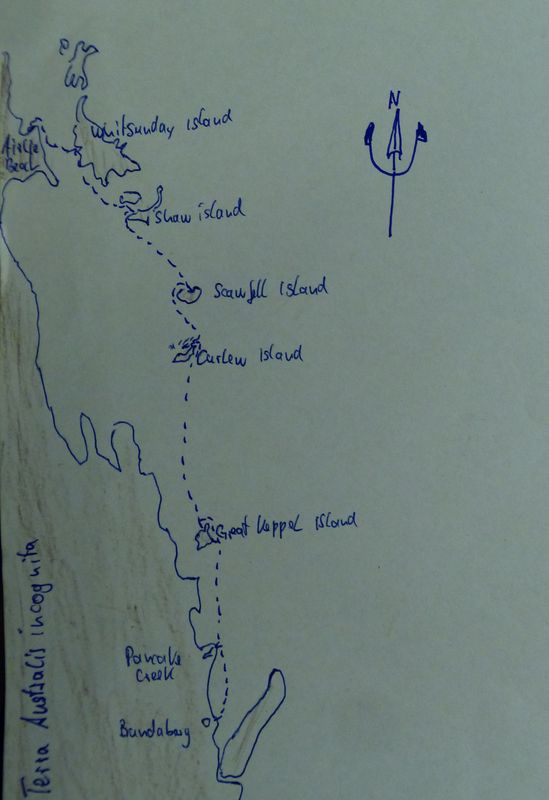 N
Whitsunday Island
Airlie
Beach
Shaw island
Scawfell Island
Curlew Island
Great Keppel Island
Terra Australis incognita
Pancake
Creek
Bundaberg